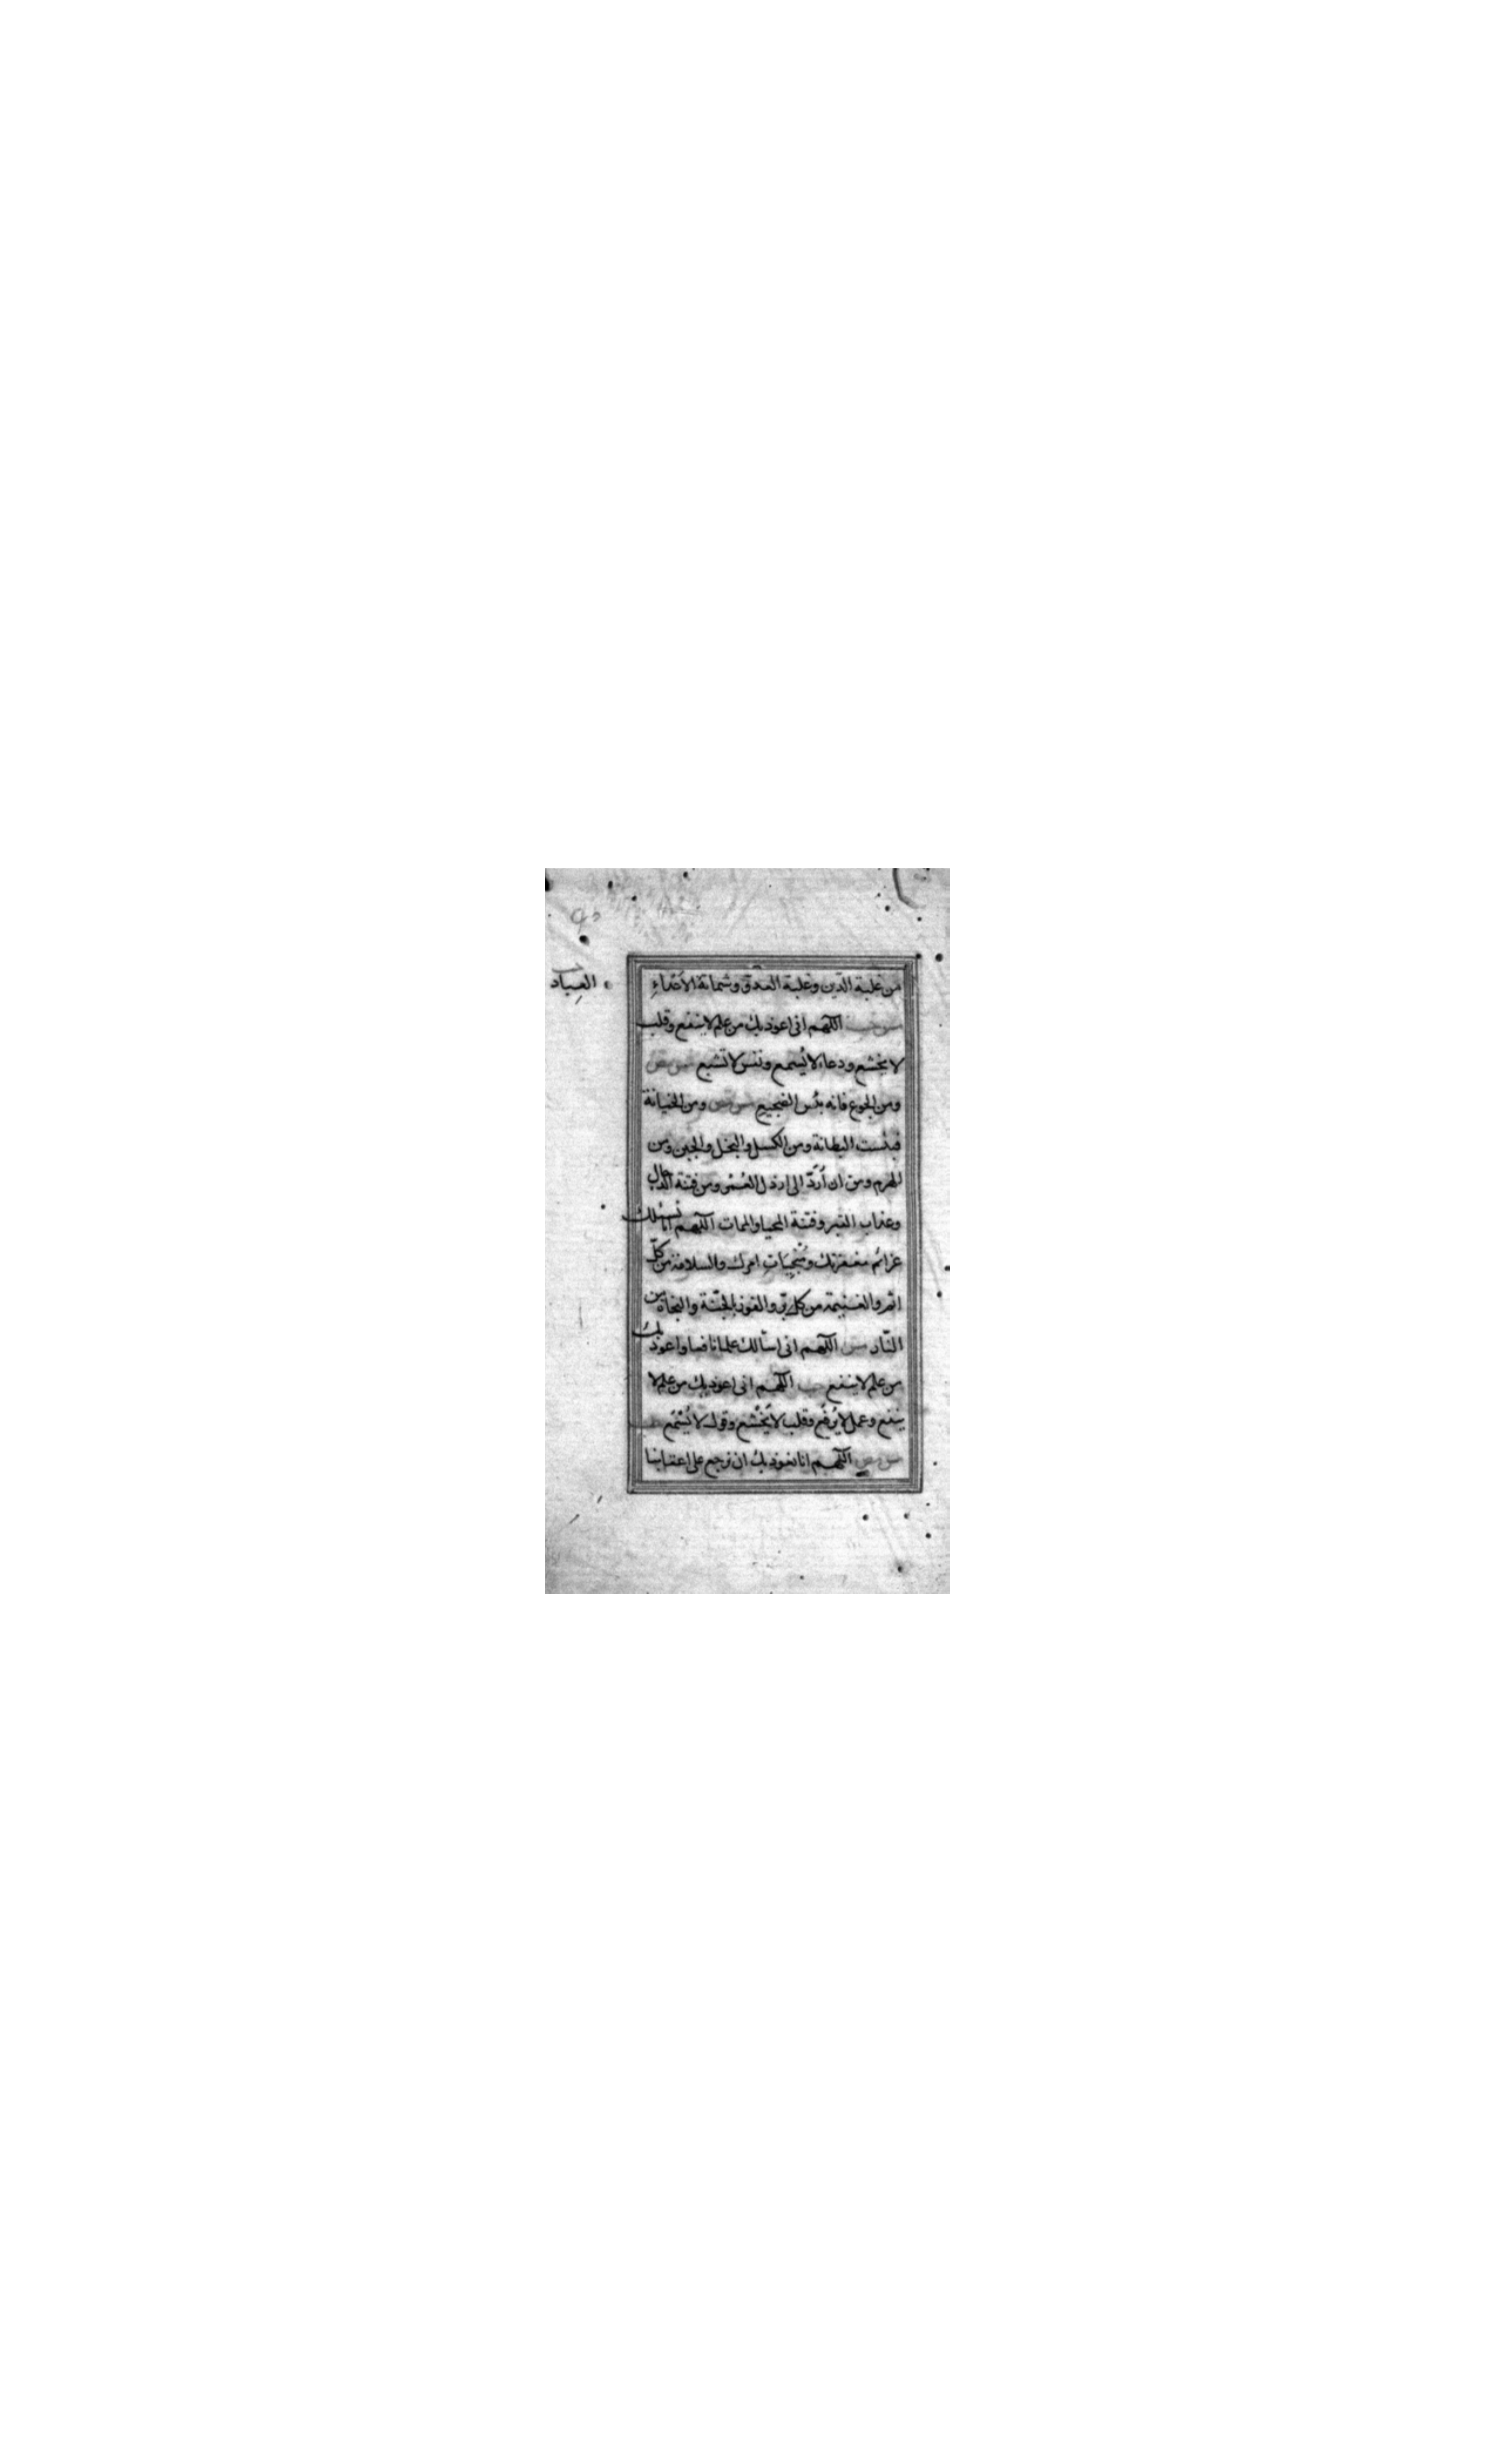 من غلبة الدّين وغلبة العدوّ وشماتة الأعداء
العِباد
اللهم انى اعوذ بك من علم لا ينفع وقلب
لا يخشع ودعاء لا يُسمع ونفس لا تشبع
ومن الجوع فانه بئس الضجيع ومن الخيانة
فبئست البطانة ومن الكسل والبخل والجبن ومن
الهرم ومن ان اُرَدّ الى ارذل العُمُر ومن فتنة الدجال
وعذاب القبر وفتنة المحيا والممات اللهم انا نسئلك
عزائم مغفرتك ومُنْجِيَاتِ امرك والسلامة من كلّ
اثم والغنيمة من كل برّ والفوز بالجنّة والنجاة من
النّار اللهم انى اسألك علما نافعا واعوذ بك
من علم لا ينفع اللهم انى اعوذ بك من علم لا
ينفع وعمل لا يُرفع وقلب لا يَخْشع وقول لا يُسْمَع
اللهم انا نعوذ بك ان نرجع على اعقابنا